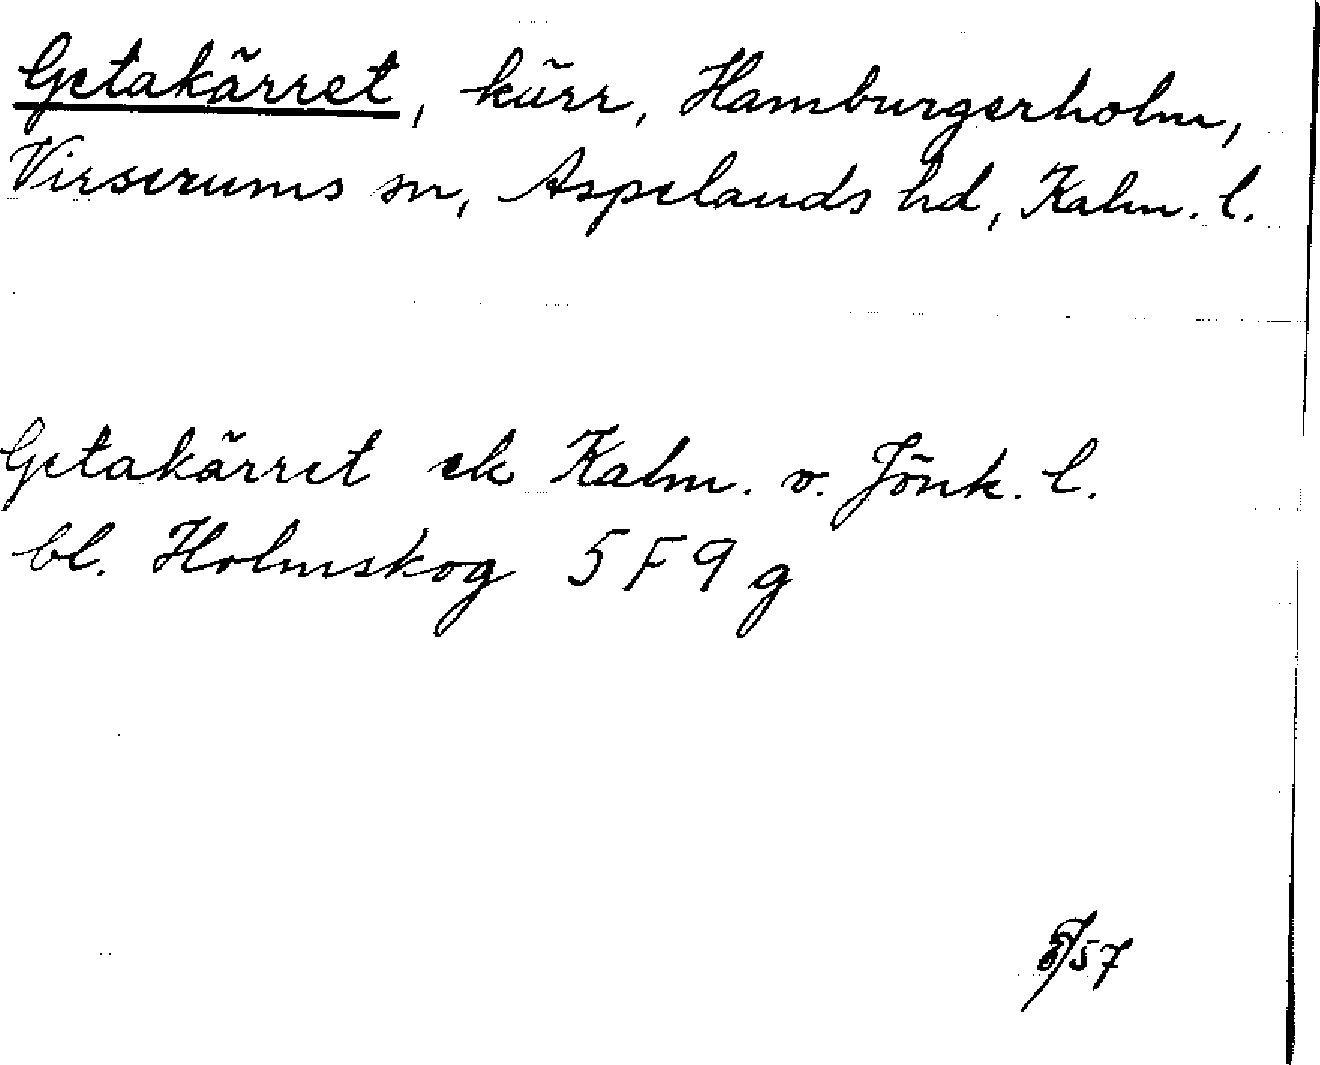 Getakärret, kärr, Hamburgerholm,
Virserums sn, Aspelands hd, Kalm. l.
Getakärret ek Kalm. o. Jönk. l.
bl. Holmskog 5 F 9 g